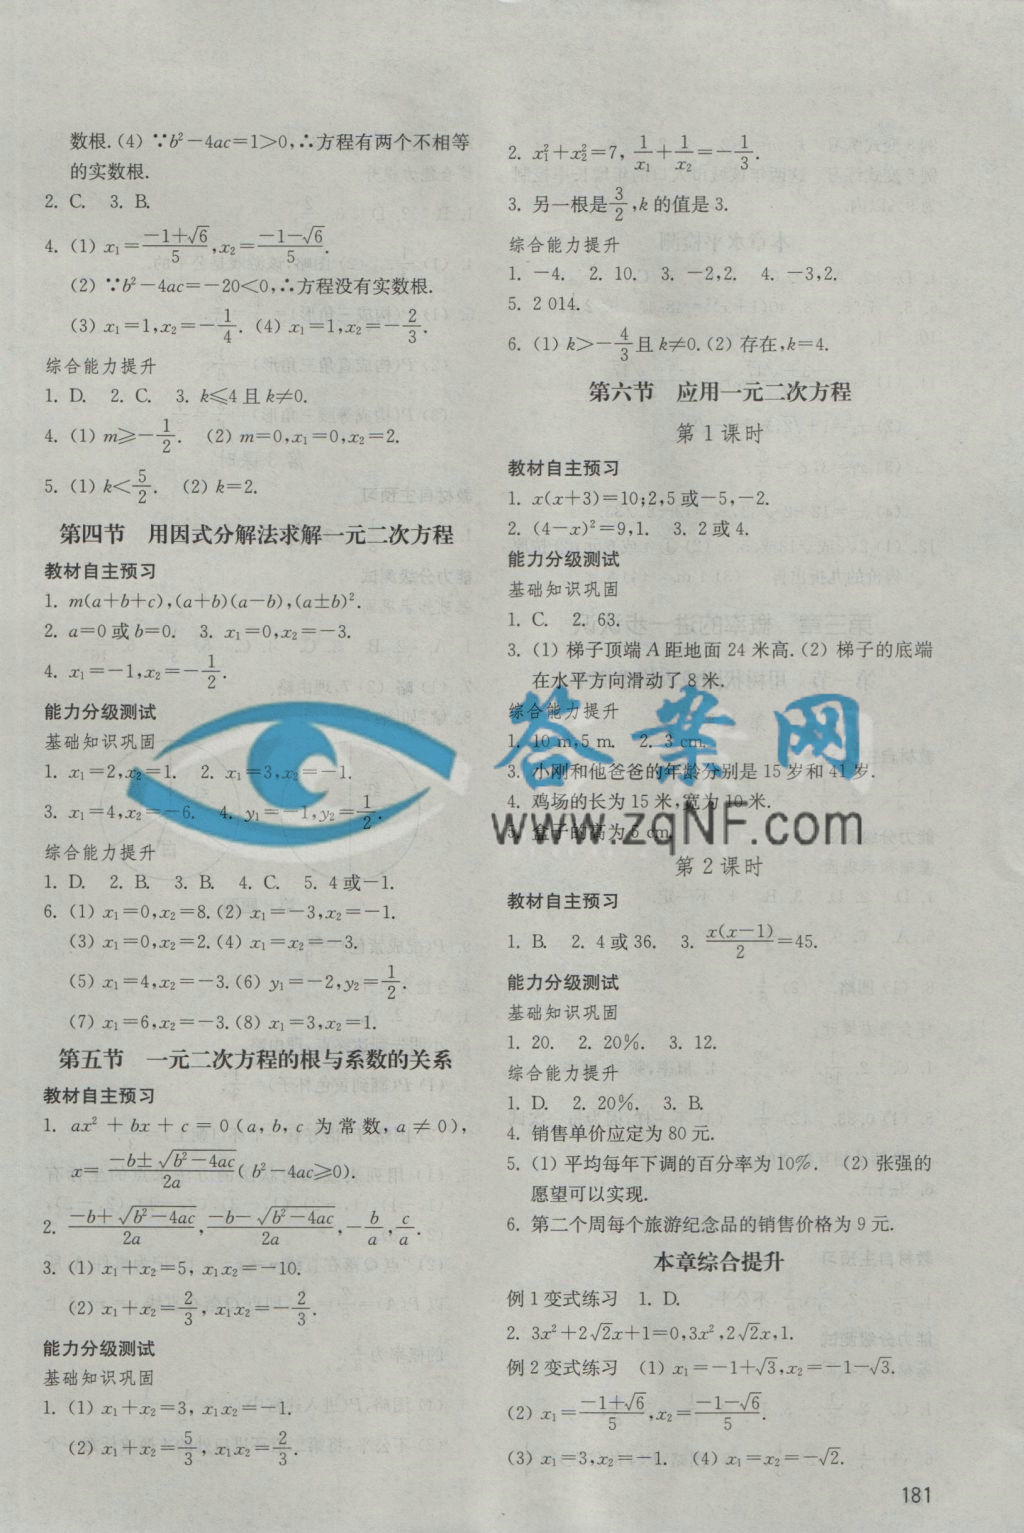 数根.(4) ∵b²-4ac=1>0,∴方程有两个不相等
的实数根.
2. C.  3. B.
4. (1) x₁=(-1+√6)/5,x₂=(-1-√6)/5.
(2) ∵b²-4ac=-20<0,∴方程没有实数根.
(3) x₁=1,x₂=-1/4. (4) x₁=1,x₂=-2/3.
综合能力提升
1. D.  2. C.  3. k≤4且k≠0.
4. (1) m≥-1/2.  (2) m=0,x₁=0,x₂=2.
5. (1) k<5/2.  (2) k=2.
第四节 用因式分解法求解一元二次方程
教材自主预习
1. m(a+b+c),(a+b)(a-b),(a±b)².
2. a=0或b=0.  3. x₁=0,x₂=-3.
4. x₁=-1,x₂=-1/2.
能力分级测试
基础知识巩固
1. x₁=2,x₂=1.  2. x₁=3,x₂=-1.
3. x₁=4,x₂=-6.  4. y₁=-1,y₂=1/2.
综合能力提升
1. D.  2. B.  3. B.  4. C.  5. 4或-1.
6. (1) x₁=0,x₂=8. (2) x₁=-3,x₂=-1.
(3) x₁=0,x₂=2. (4) x₁=x₂=-3.
(5) x₁=4,x₂=-3. (6) y₁=-2,y₂=1/2.
(7) x₁=6,x₂=-3. (8) x₁=3,x₂=1.
第五节 一元二次方程的根与系数的关系
教材自主预习
1. ax²+bx+c=0(a,b,c为常数,a≠0),
x=(-b±√(b²-4ac))/2a (b²-4ac≥0).
2. (-b+√(b²-4ac))/2a,(-b-√(b²-4ac))/2a,-b/a,c/a.
3. (1) x₁+x₂=5, x₁x₂=-10.
(2) x₁+x₂=2/3, x₁x₂=-2/3.
能力分级测试
基础知识巩固
1. (1) x₁+x₂=3, x₁x₂=-1.
(2) x₁+x₂=5/3, x₁x₂=2/3.
2. x₁²+x₂²=7, 1/x₁+1/x₂=-1/3.
3. 另一根是3/2,k的值是3.
综合能力提升
1. -4.  2. 10.  3. -2,2.  4. -3,2.
5. 2 014.
6. (1) k>-4/3且k≠0. (2) 存在,k=4.
第六节 应用一元二次方程
第1课时
教材自主预习
1. x(x+3)=10;2,5或-5,-2.
2. (4-x)²=9,1.  3. 2或4.
能力分级测试
基础知识巩固
1. C.  2. 63.
3. (1) 梯子顶端A距地面24米高. (2) 梯子的底端
在水平方向滑动了8米.
综合能力提升
1. 10 m,5 m.  2. 3 cm.
3. 小刚和他爸爸的年龄分别是15岁和41岁.
4. 鸡场的长为15米,宽为10米.
5. 盒子的高为5 cm.
第2课时
教材自主预习
1. B.  2. 4或36.  3. x(x-1)/2=45.
能力分级测试
基础知识巩固
1. 20.  2. 20%.  3. 12.
综合能力提升
1. D.  2. 20%.  3. B.
4. 销售单价应定为80元.
5. (1) 平均每年下调的百分率为10%.  (2) 张强的
愿望可以实现.
6. 第二个周每个旅游纪念品的销售价格为9元.
本章综合提升
例1变式练习  1. D.
2. 3x²+2√2x+1=0,3x²,2√2x,1.
例2变式练习  (1) x₁=-1+√3,x₂=-1-√3.
(2) x₁=(-1+√6)/5,x₂=(-1-√6)/5.
(3) x₁=3,x₂=-1.  (4) x₁=x₂=-√2.
181
答案网
www.zqNF.com